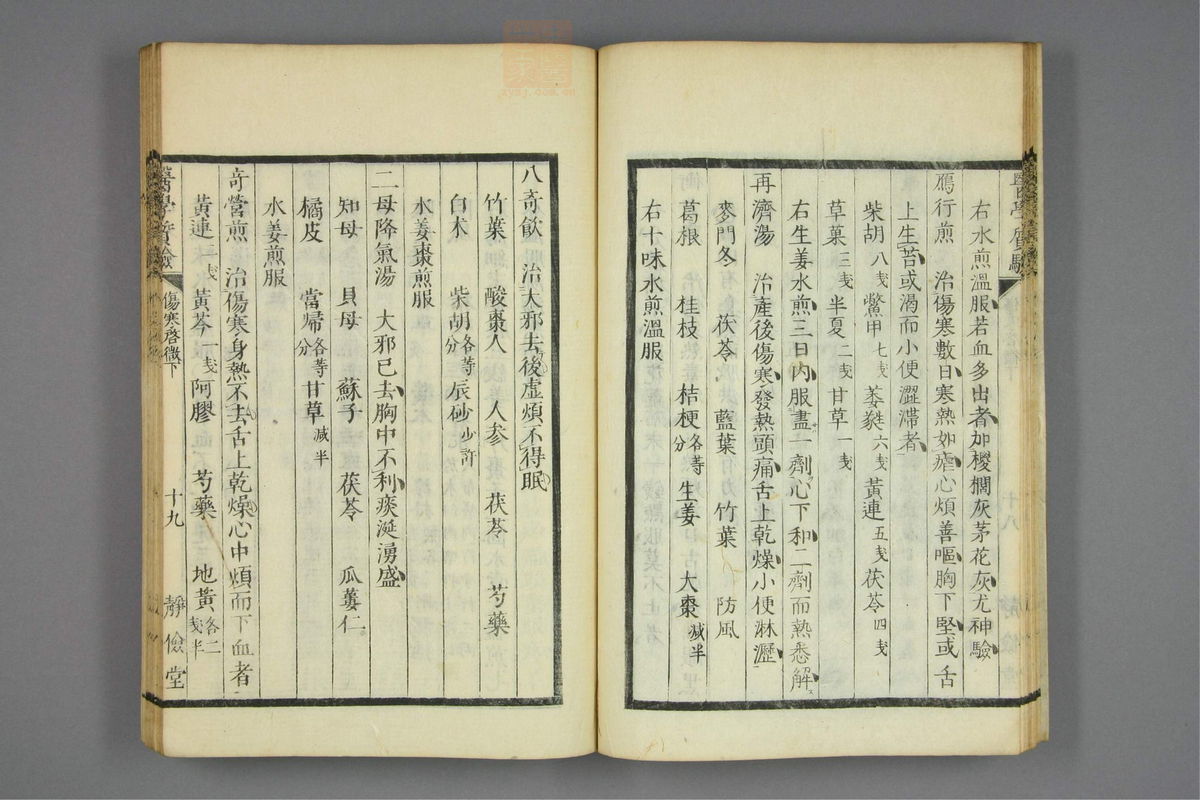 右水煎溫服若血多出者加椶櫚灰茅花灰尤神驗
鴈行煎 治傷寒數日寒熱如瘧心煩善嘔胸下堅或舌
上生苔或渴而小便澀滯者
柴胡八戔 鱉甲七戔 萎蕤六戔 黃連五戔 茯苓四戔
草菓三戔 半夏二戔 甘草一戔
右生姜水煎三日内服盡一劑心下和二劑而熱悉解
再濟湯 治產後傷寒發熱頭痛舌上乾燥小便淋瀝
麥門冬 茯苓 藍葉 竹葉 防風
葛根 桂枝 桔梗各等分 生姜 大棗減半
右十味水煎溫服
八奇飲 治大邪去後虚煩不得眠
竹葉 酸棗人 人参 茯苓 芍藥
白术 柴胡各等分 辰砂少許
水姜棗煎服
二母降氣湯 大邪已去胸中不利痰涎湧盛
知母 貝母 蘇子 茯苓 瓜蔞仁
橘皮 當帰各等分 甘草減半
水姜煎服
奇營煎 治傷寒身熱不去舌上乾燥心中煩而下血者
黃連一戔 黃芩一戔 阿膠 芍藥 地黃各二戔半
醫學質驗 傷寒啓微下 十九 靜儉堂